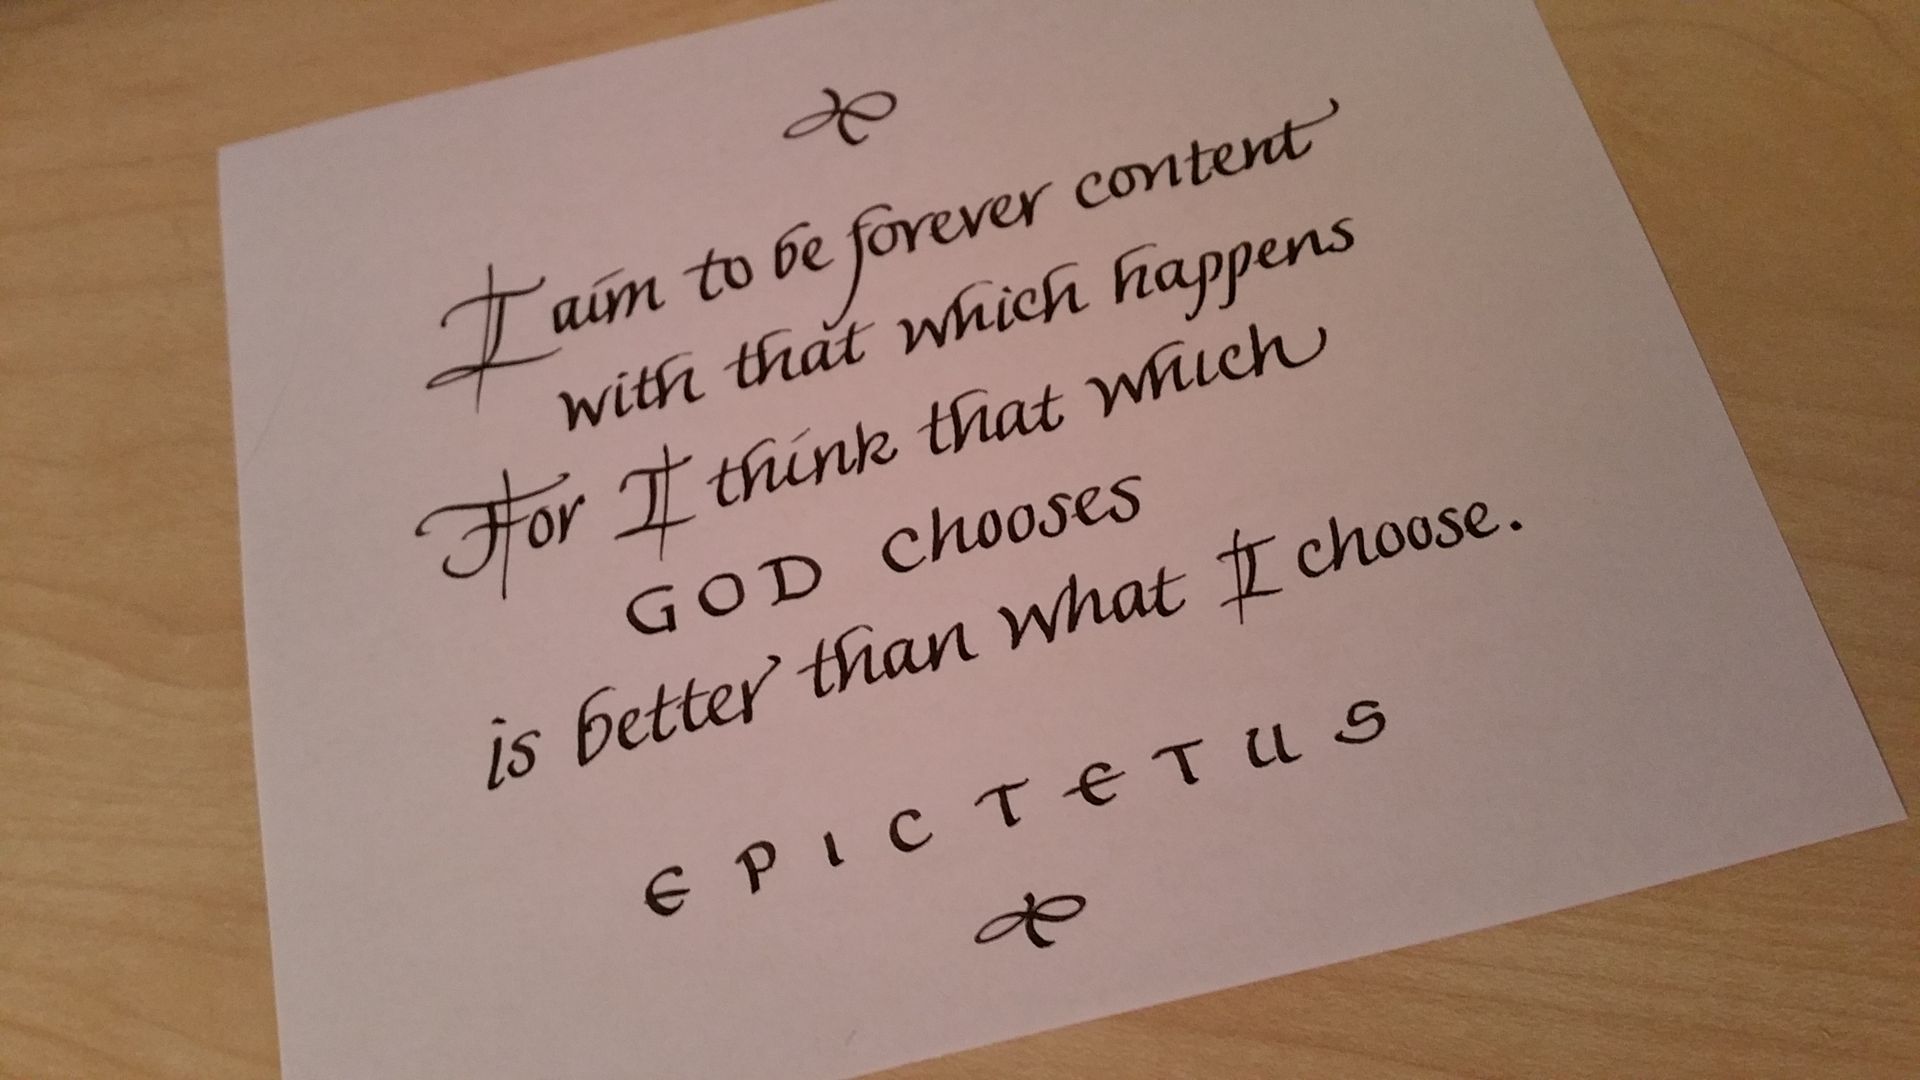 I aim to be forever content
with that which happens
For I think that which
GOD chooses
is better than what I choose.
EPICTETUS